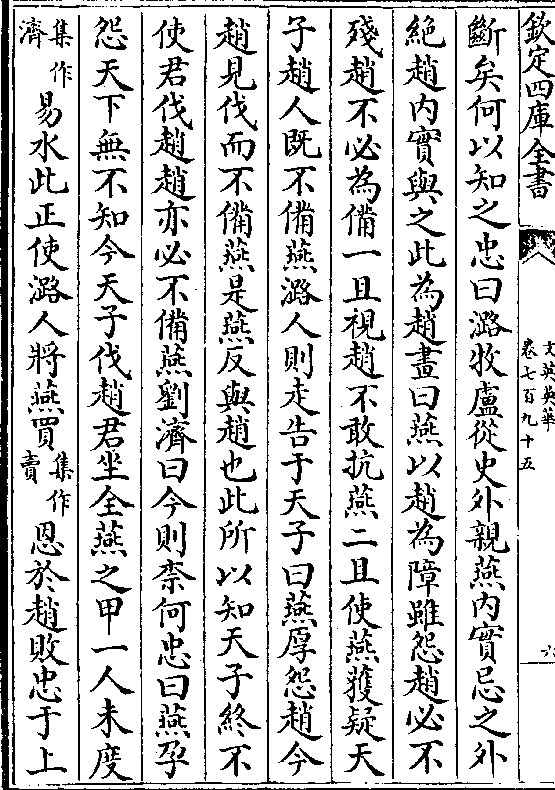 欽定四庫全書
文苑英華
卷七百九十五
六
斷矣何以知之忠曰潞牧盧從史外親燕内實忌之外
絶趙内實與之此為趙畫曰燕以趙為障雖怨趙必不
殘趙不必為備一且視趙不敢抗燕二且使燕獲疑天
子趙人既不備燕潞人則走告于天子曰燕厚怨趙今
趙見伐而不備燕是燕反與趙也此所以知天子終不
使君伐趙趙亦必不備燕劉濟曰今則柰何忠曰燕孕
怨天下無不知今天子伐趙君坐全燕之甲一人未度
集作濟易水此正使潞人將燕買集作賣恩於趙敗忠于上